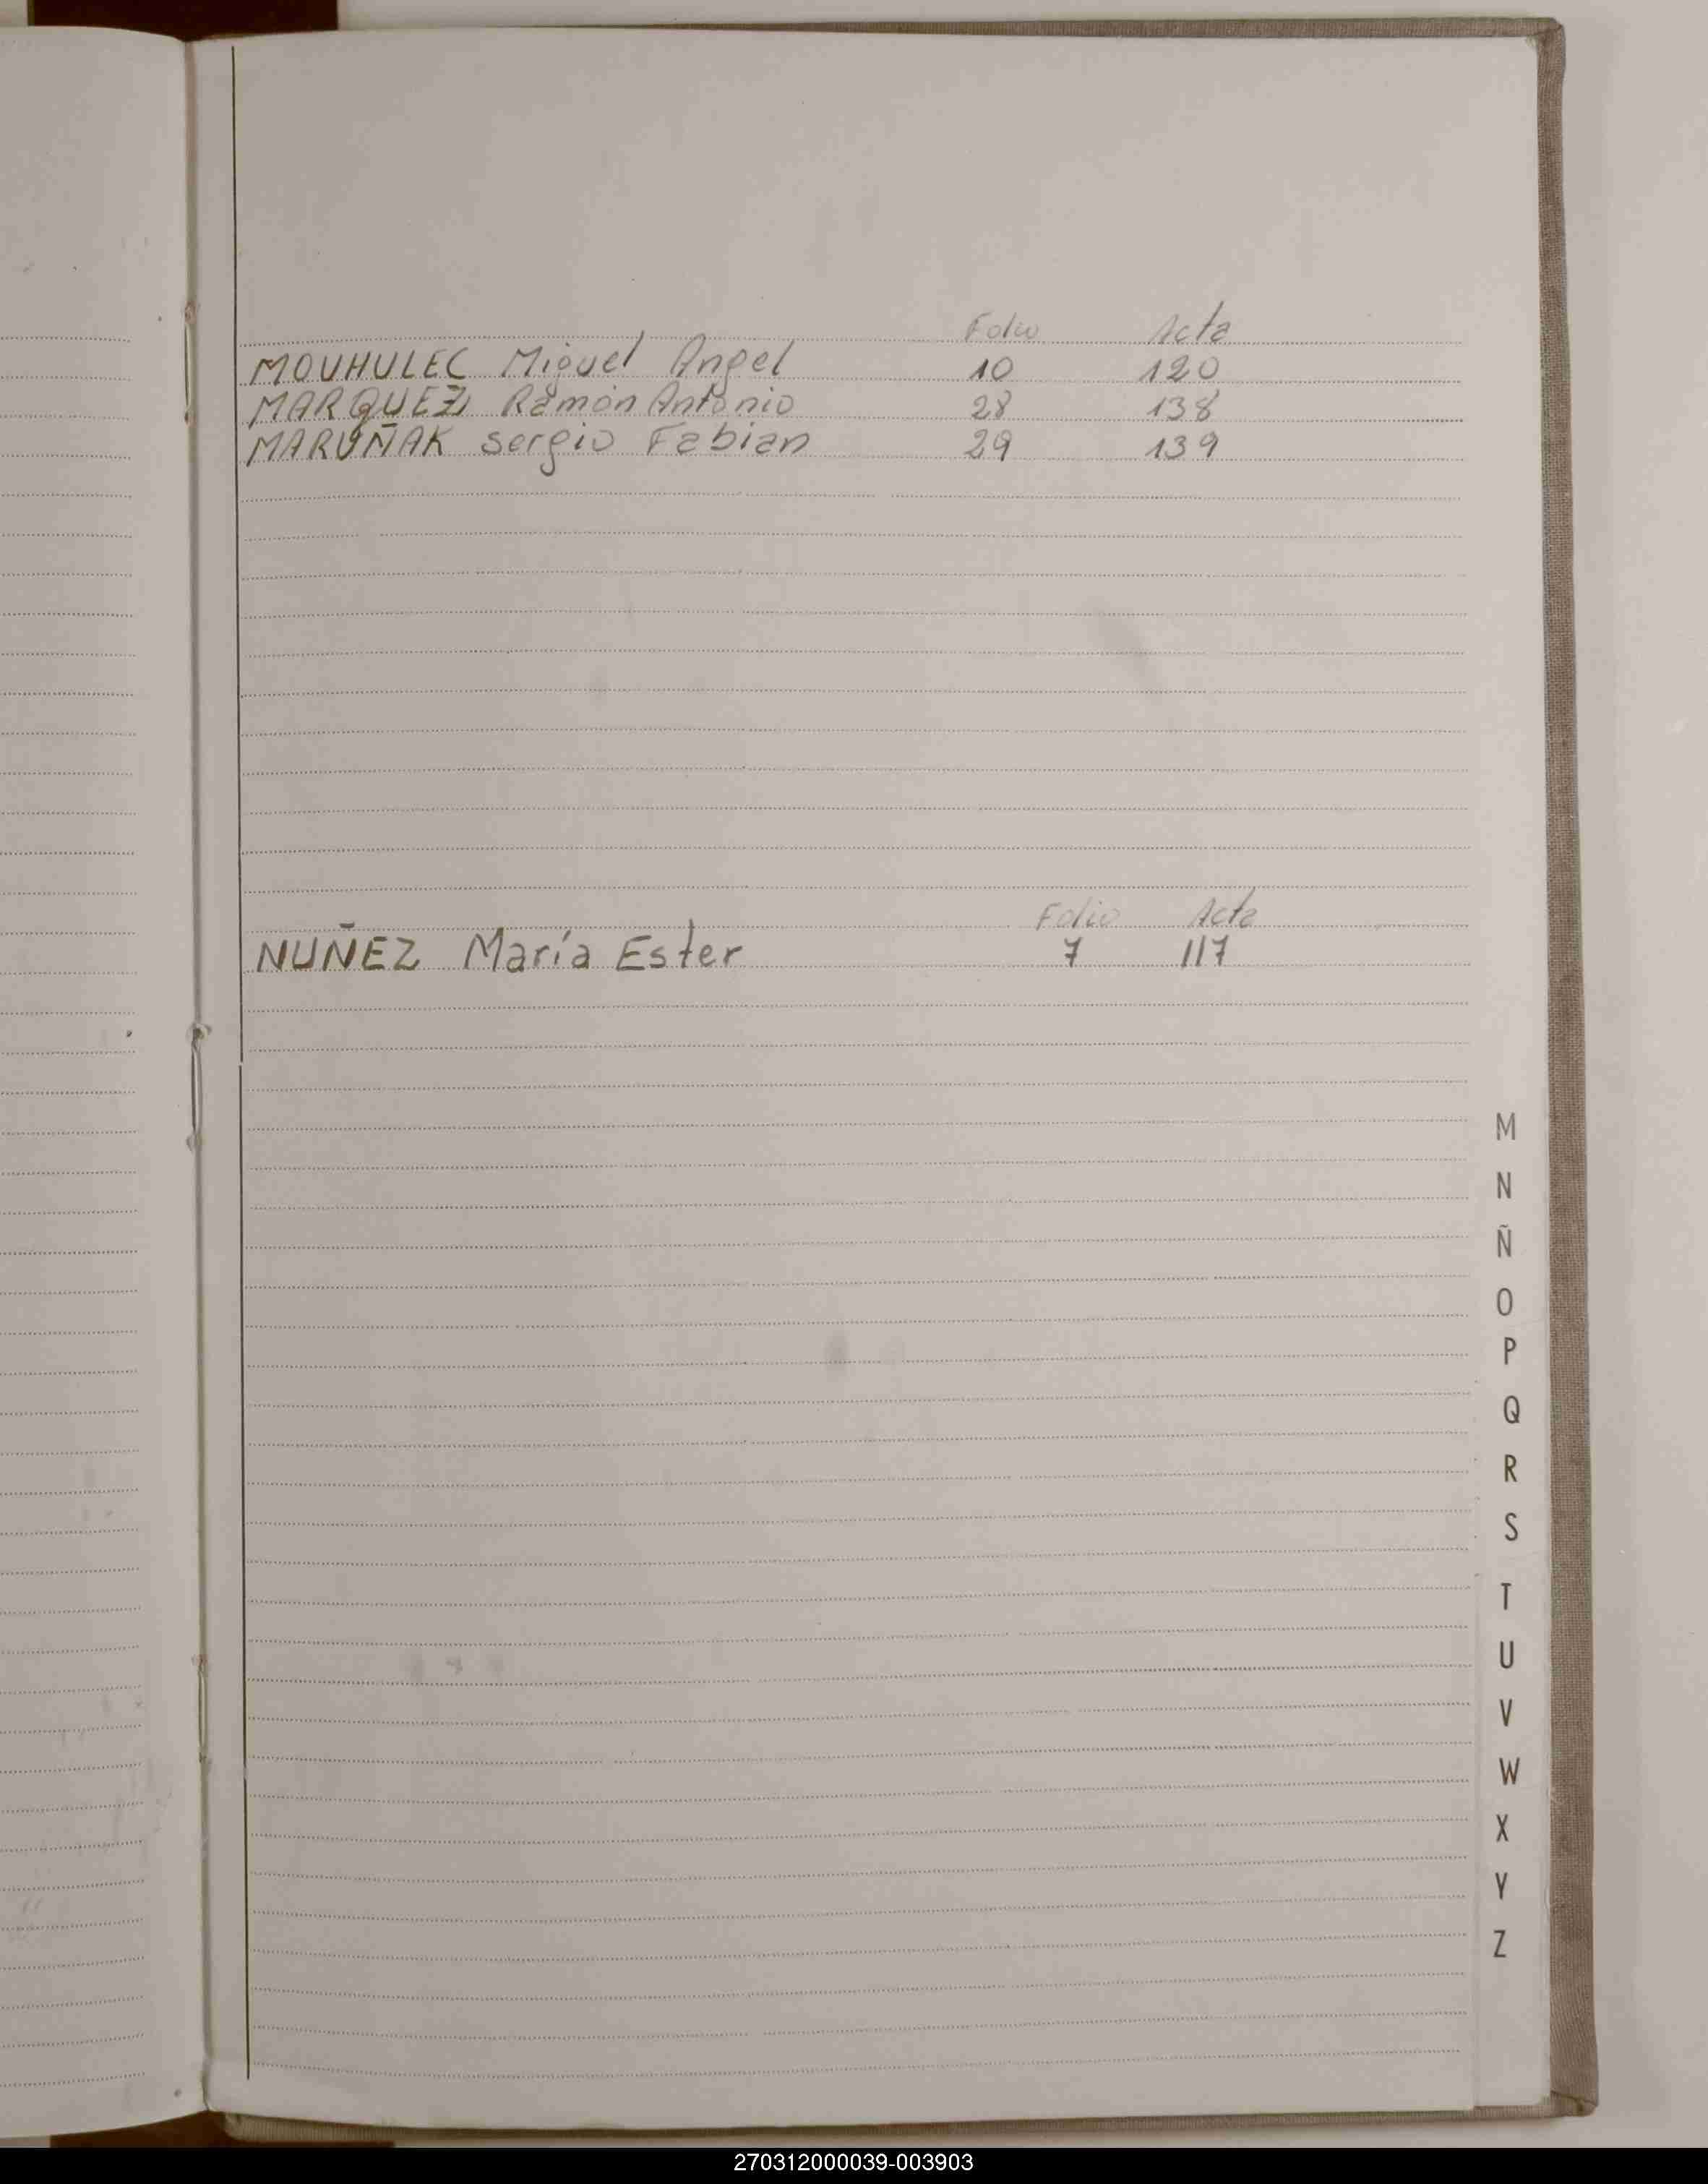 Folio Acta
MOUHULEC Miguel Angel 10 120
MARQUEZ Ramón Antonio 28 138
MARUÑAK Sergio Fabian 29 139
Folio Acta
NUÑEZ María Ester 7 117
M
N
Ñ
O
P
Q
R
S
T
U
V
W
X
Y
Z
270312000039-003903